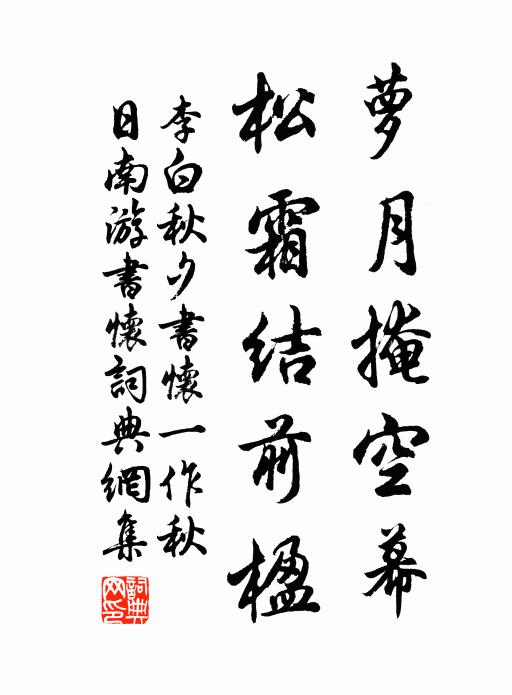 萝月掩空幕
松霜结前楹
李白秋夕書懷一作秋
日南游書懷詞典網集
詞典
网印